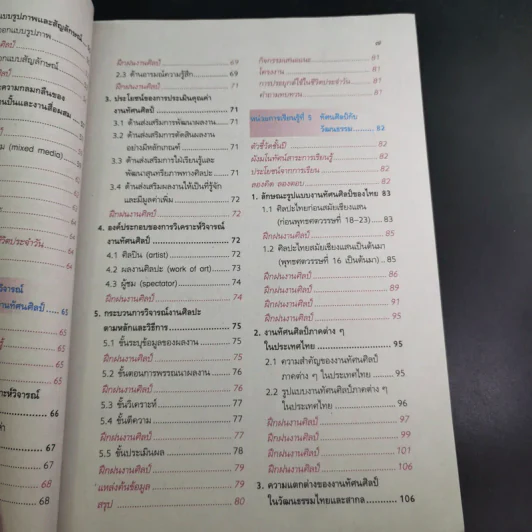 บบรูปภาพและสัญลักษณ์
อกแบบรูปภาพ
นศิลป์
อกแบบสัญลักษณ์
นศิลป์
ความกลมกลืนของ
ปั้นและงานสื่อผสม
(mixed media)
ชีวิตประจำวัน
64
วิจารณ์
านทัศนศิลป์ ..... 65
65
65
65
ห์วิจารณ์
66
67
67
68
68
ฝึกฝนงานศิลป์ 69
2.3 ด้านอารมณ์ความรู้สึก 69
ฝึกฝนงานศิลป์ 71
3. ประโยชน์ของการประเมินคุณค่า
งานทัศนศิลป์ 71
3.1 ด้านส่งเสริมการพัฒนาผลงาน 71
3.2 ด้านส่งเสริมการตัดสินผลงาน
อย่างมีหลักเกณฑ์ 71
3.3 ด้านส่งเสริมการใฝ่เรียนรู้และ
พัฒนาสุนทรียภาพทางศิลปะ 71
3.4 ด้านส่งเสริมผลงานให้เป็นที่รู้จัก
และมีมูลค่าเพิ่ม 72
ฝึกฝนงานศิลป์ 72
4. องค์ประกอบของการวิเคราะห์วิจารณ์
งานทัศนศิลป์ 72
4.1 ศิลปิน (artist) 72
4.2 ผลงานศิลปะ (work of art) 73
4.3 ผู้ชม (spectator) 74
ฝึกฝนงานศิลป์ 74
5. กระบวนการวิจารณ์งานศิลปะ
ตามหลักและวิธีการ 75
5.1 ขั้นระบุข้อมูลของผลงาน 75
ฝึกฝนงานศิลป์ 75
5.2 ขั้นตอนการพรรณนาผลงาน 76
ฝึกฝนงานศิลป์ 76
5.3 ขั้นวิเคราะห์ 77
5.4 ขั้นตีความ 77
ฝึกฝนงานศิลป์ 77
5.5 ขั้นประเมินผล 78
ฝึกฝนงานศิลป์ 79
แหล่งค้นข้อมูล 79
สรุป 80
กิจกรรมเสนอแนะ 81
โครงงาน 81
การประยุกต์ใช้ในชีวิตประจำวัน 81
คำถามทบทวน 81
หน่วยการเรียนรู้ที่ 5 ทัศนศิลป์กับ
วัฒนธรรม 82
ตัวชี้วัดชั้นปี 82
ผังมโนทัศน์สาระการเรียนรู้ 82
ประโยชน์จากการเรียน 82
ลองคิด ลองตอบ 82
1. ลักษณะรูปแบบงานทัศนศิลป์ของไทย 83
1.1 ศิลปะไทยก่อนสมัยเชียงแสน
(ก่อนพุทธศตวรรษที่ 18–23) 83
ฝึกฝนงานศิลป์ 85
1.2 ศิลปะไทยสมัยเชียงแสนเป็นต้นมา
(พุทธศตวรรษที่ 16 เป็นต้นมา) 85
ฝึกฝนงานศิลป์ 86
ฝึกฝนงานศิลป์ 89
ฝึกฝนงานศิลป์ 91
ฝึกฝนงานศิลป์ 95
2. งานทัศนศิลป์ภาคต่าง ๆ
ในประเทศไทย 95
2.1 ความสำคัญของงานทัศนศิลป์
ภาคต่าง ๆ ในประเทศไทย 95
2.2 รูปแบบงานทัศนศิลป์ภาคต่าง ๆ
ในประเทศไทย 96
ฝึกฝนงานศิลป์ 97
ฝึกฝนงานศิลป์ 99
ฝึกฝนงานศิลป์ 101
ฝึกฝนงานศิลป์ 106
3. ความแตกต่างของงานทัศนศิลป์
ในวัฒนธรรมไทยและสากล 106